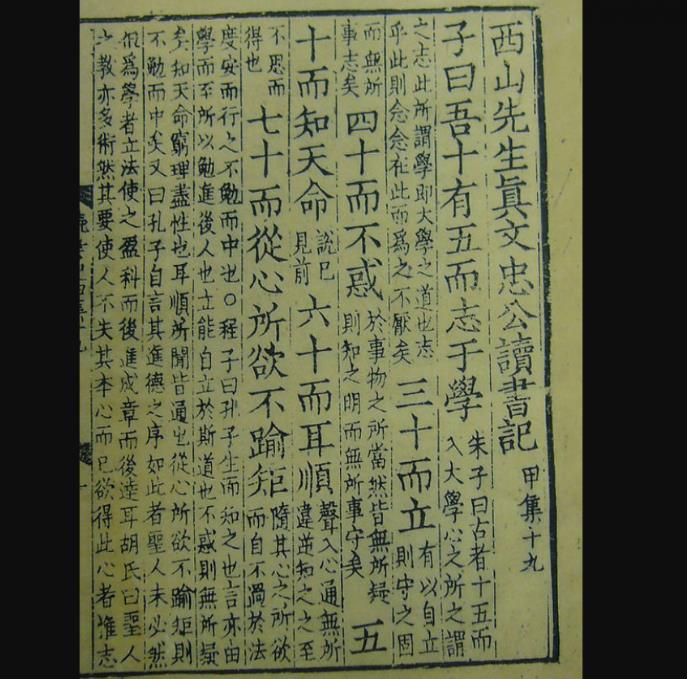 西山先生眞文忠公讀書記 甲集十九
子曰吾十有五而志于學
朱子曰古者十五而
入大學心之所之謂
之志此所謂學即大學之道也志
乎此則念念在此而爲之不厭矣
三十而立
有以自立
則守之固
而無所
事志矣
四十而不惑
於事物之所當然皆無所疑
則知之明而無所事守矣
五
十而知天命
說已
見前
六十而耳順
聲入心通無所
違逆知之之至
不思而
得也
七十而從心所欲不踰矩
隨其心之所欲
而自不過於法
度安而行之不勉而中也○程子曰孔子生而知之也言亦由
學而至所以勉進後人也立能自立於斯道也不惑則無所疑
矣知天命窮理盡性也耳順所聞皆通也從心所欲不踰矩則
不勉而中矣又曰孔子自言其進德之序如此者聖人未必然
但爲學者立法使之盈科而後進成章而後達耳胡氏曰聖人
之教亦多術然其要使人不失其本心而已欲得此心者惟志